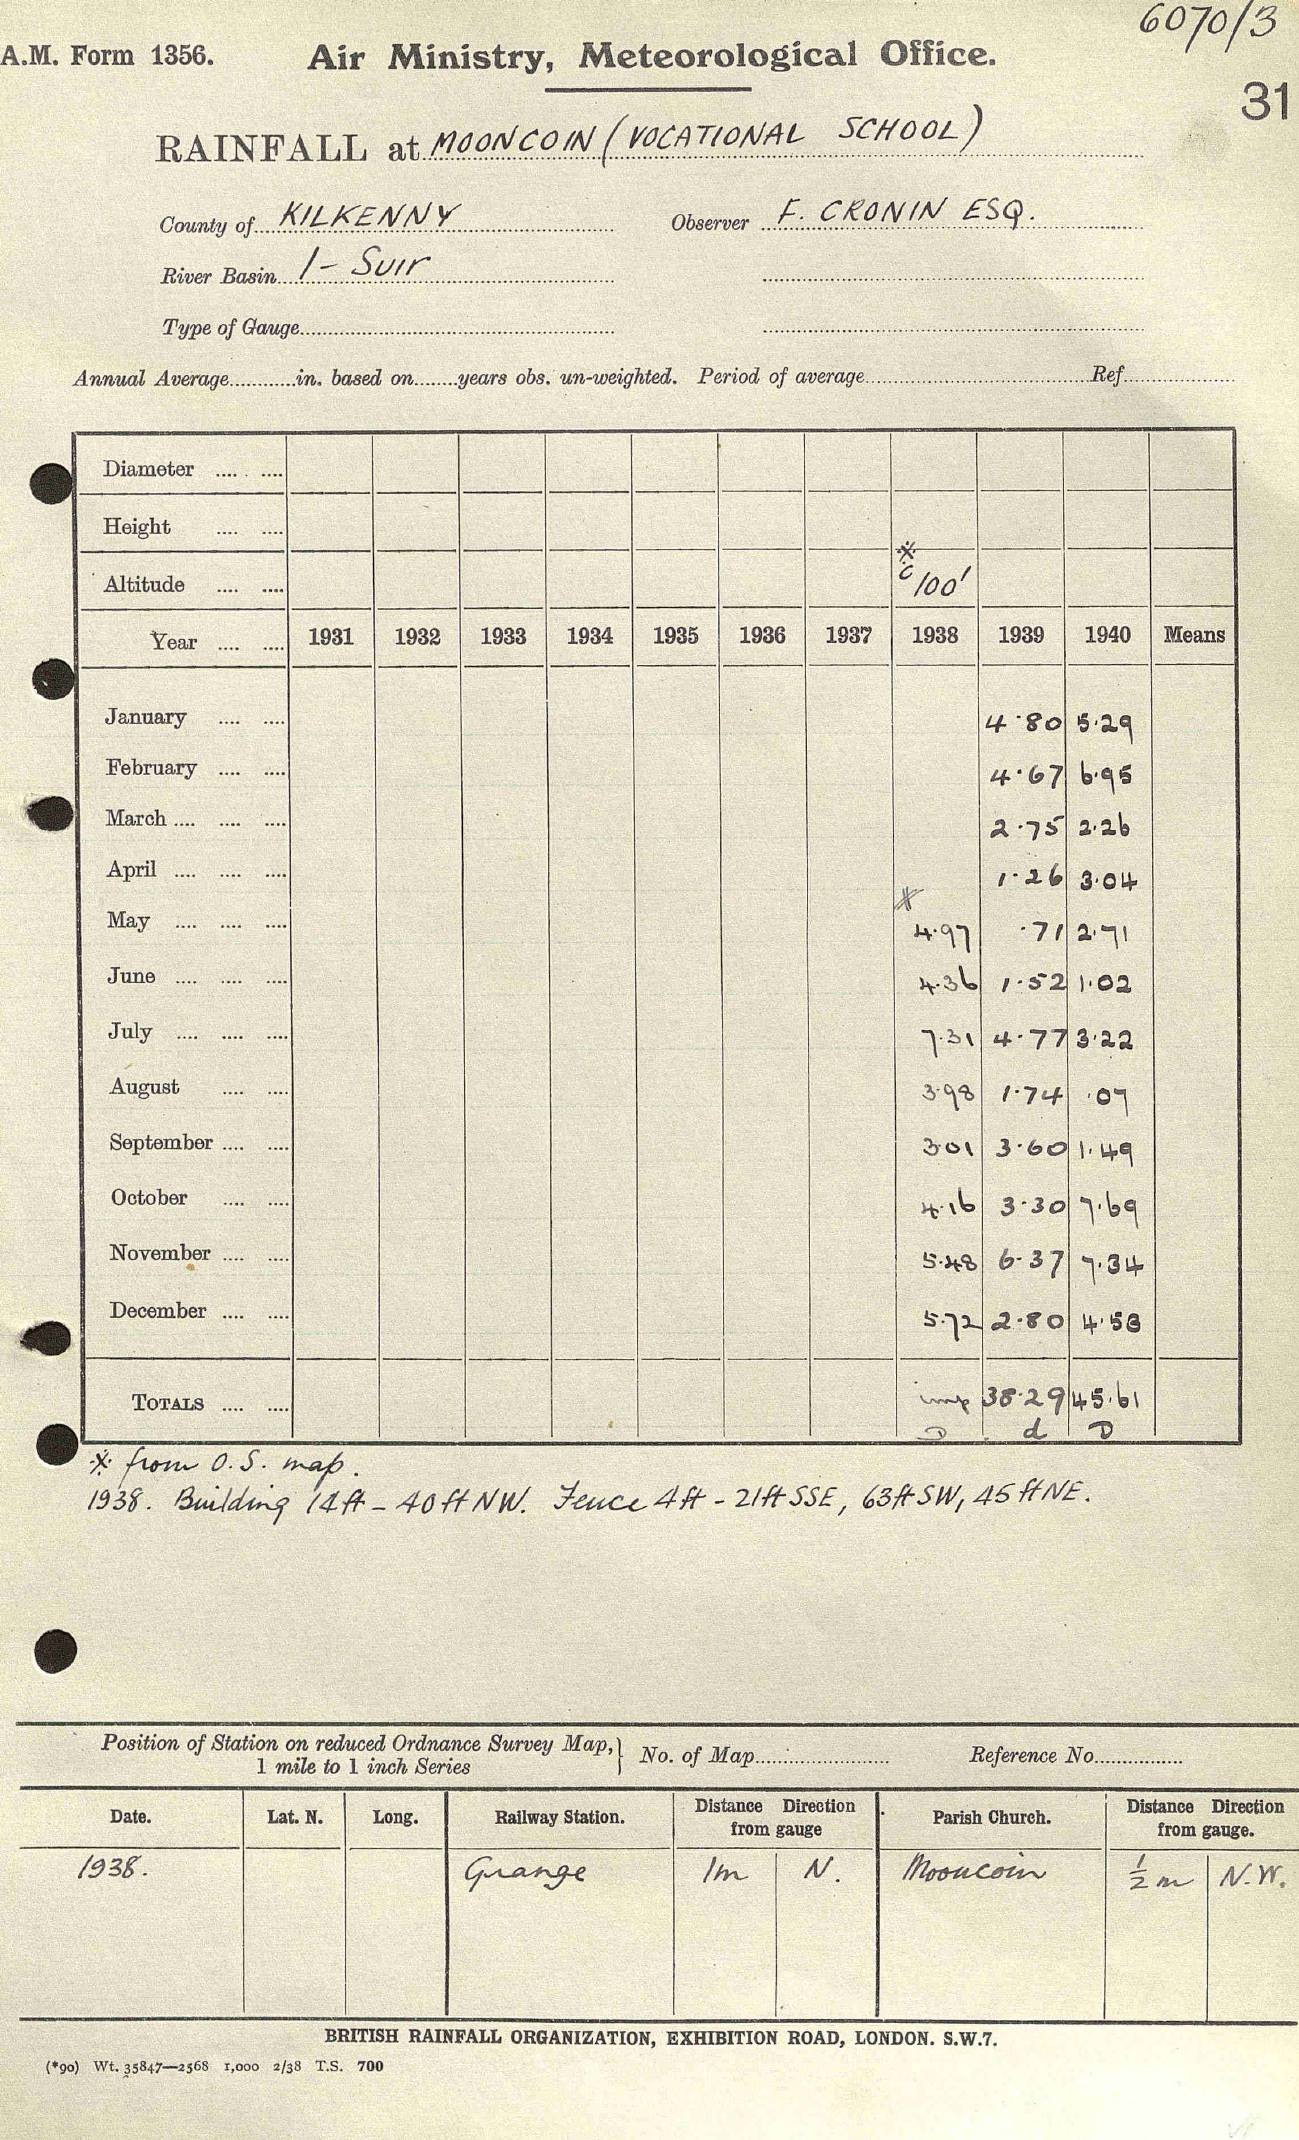 6070/3
A.M. Form 1356. Air Ministry, Meteorological Office.
31
RAINFALL at MOONCOIN (VOCATIONAL SCHOOL)
County of KILKENNY Observer F. CRONIN ESQ.
River Basin 1- Suir
Type of Gauge
Annual Average in. based on years obs. un-weighted. Period of average Ref
Diameter
Height
Altitude * c 100'
Year 1931 1932 1933 1934 1935 1936 1937 1938 1939 1940 Means
January 4.80 5.29
February 4.67 6.95
March 2.75 2.26
April 1.26 3.04
May * 4.97 .71 2.71
June 4.36 1.52 1.02
July 7.31 4.77 3.22
August 3.98 1.74 .07
September 3.01 3.60 1.49
October 4.16 3.30 7.69
November 5.48 6.37 7.34
December 5.72 2.80 4.53
TOTALS imp 38.29 45.61
D d D
* from O.S. map.
1938. Building 14ft - 40ft NW. Fence 4ft - 21ft SSE, 63ft SW, 45ft NE.
Position of Station on reduced Ordnance Survey Map, 1 mile to 1 inch Series } No. of Map Reference No.
Date. Lat. N. Long. Railway Station. Distance Direction from gauge Parish Church. Distance Direction from gauge.
1938. Grange 1m N. Mooncoin ½ m N.W.
BRITISH RAINFALL ORGANIZATION, EXHIBITION ROAD, LONDON. S.W.7.
(*90) Wt. 35847—2568 1,000 2/38 T.S. 700